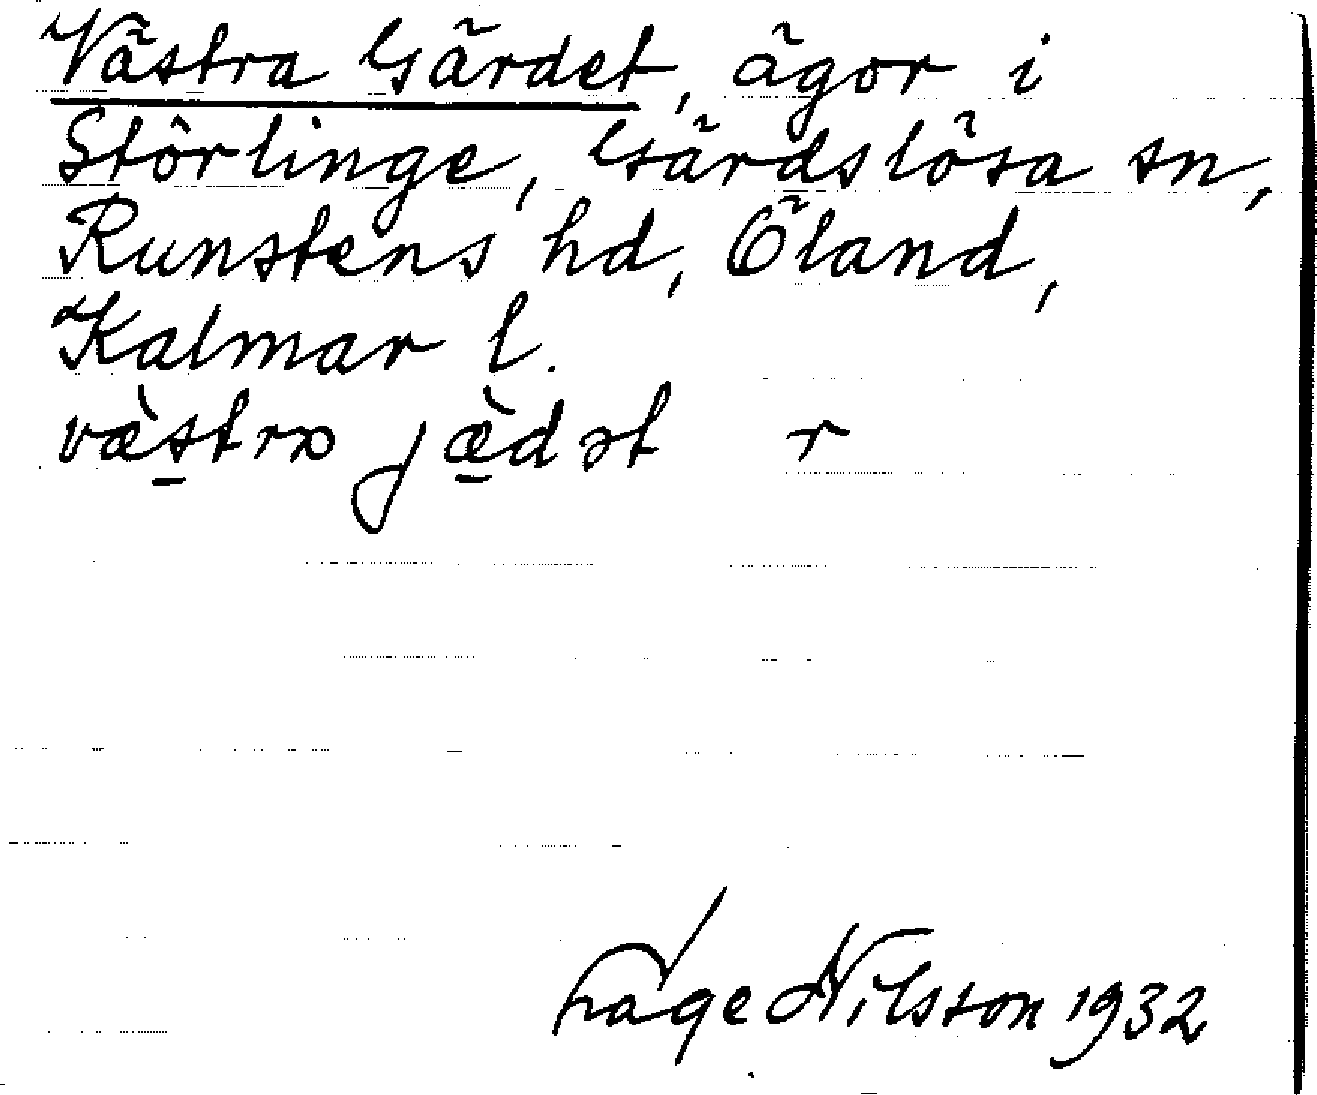 Västra Gärdet, ägor i
Störlinge, Gärdslösa sn,
Runstens hd, Öland,
Kalmar l.
væ̀stra jæ̀dət r
Tage Nilsson 1932